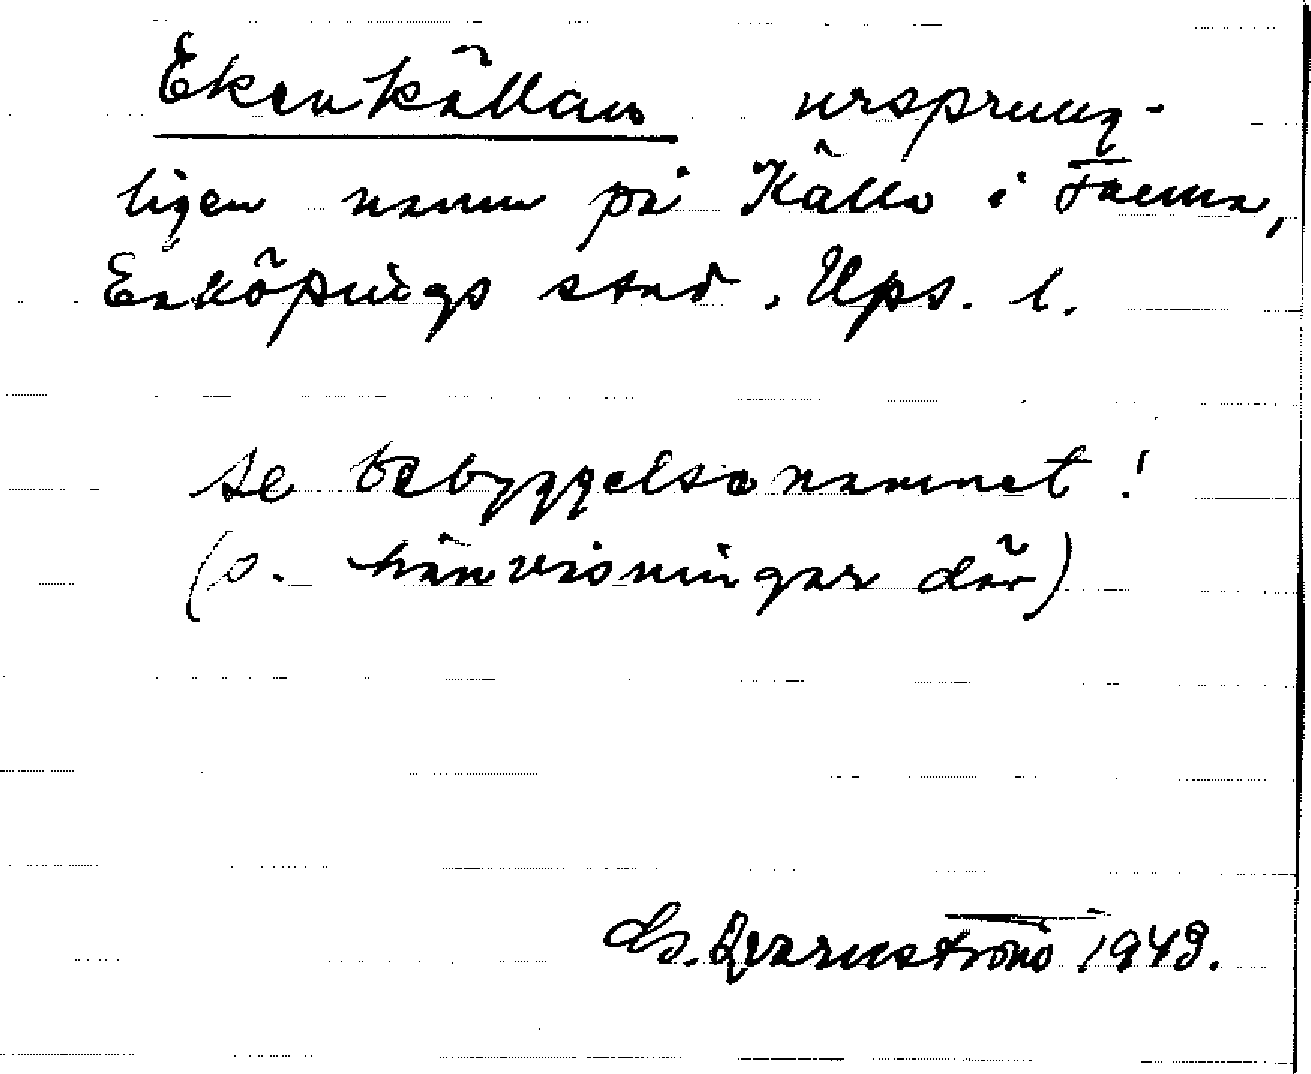 Ekenkällan ursprung-
ligen namn på Källa i Fanna,
Enköpings stad, Ups. l.
se bebyggelsenamnet!
(o. hänvisningar där)
G. Qvarnström 1943.